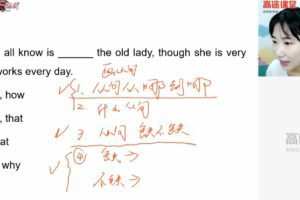 高途课堂
all know is ______ the old lady, though she is very
works every day.
, how
, that
at
why
1. 从句从哪到哪
2. 什么从句
3. 从句缺不缺
④ 缺→
不缺→